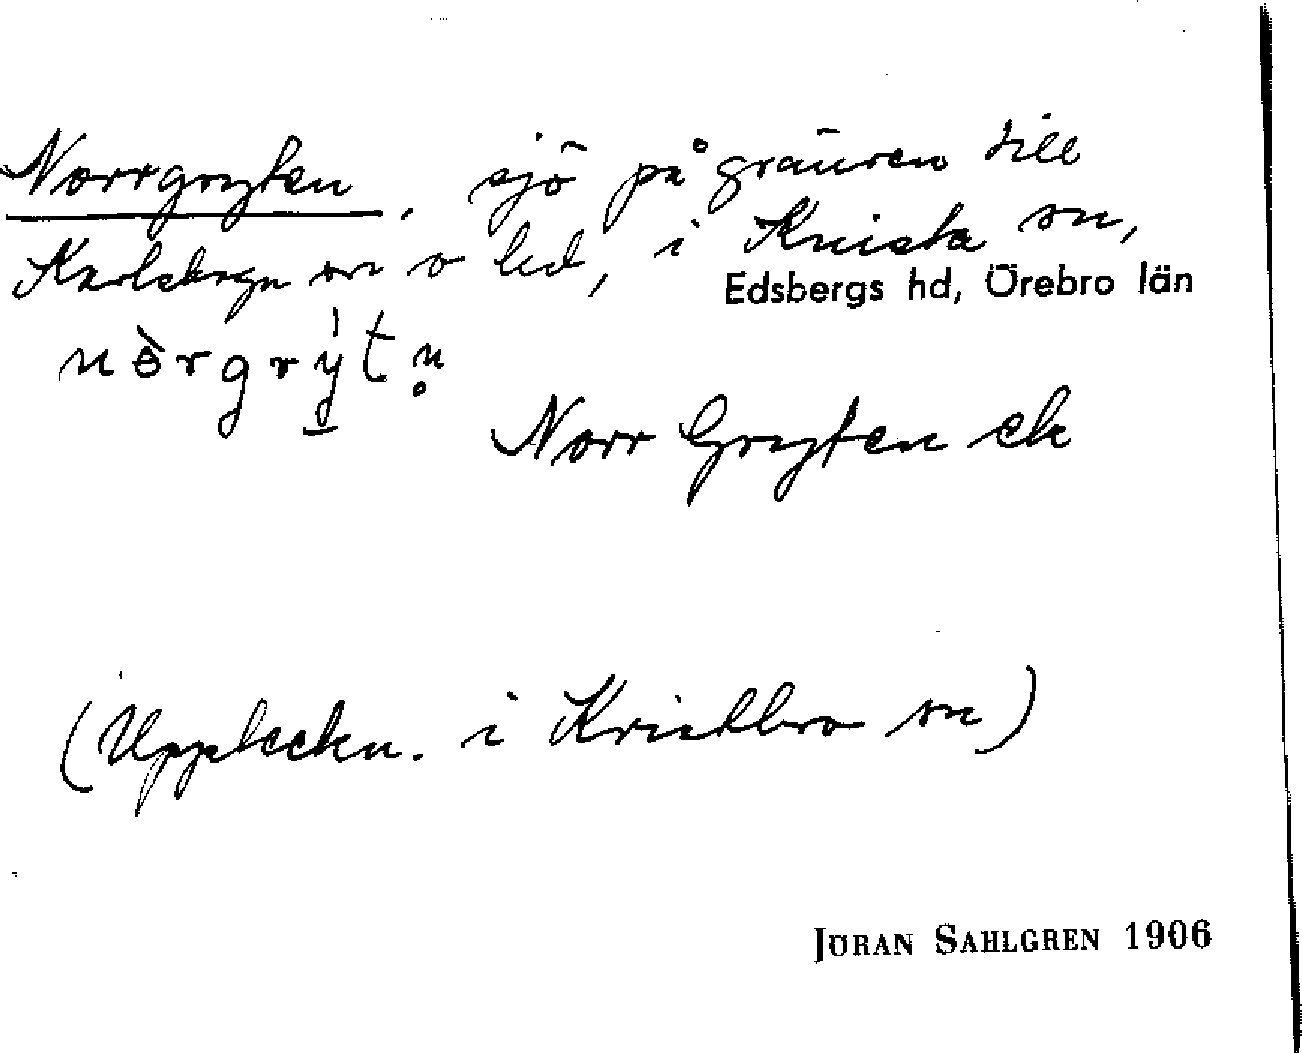 Norrgryten, sjö på gränsen till
Karlskoga sn o bd, i Knista sn,
Edsbergs hd, Örebro län
nòrgrýtn̥
Norr Gryten ek
(Uppteckn. i Kristbro sn)
JÖRAN SAHLGREN 1906